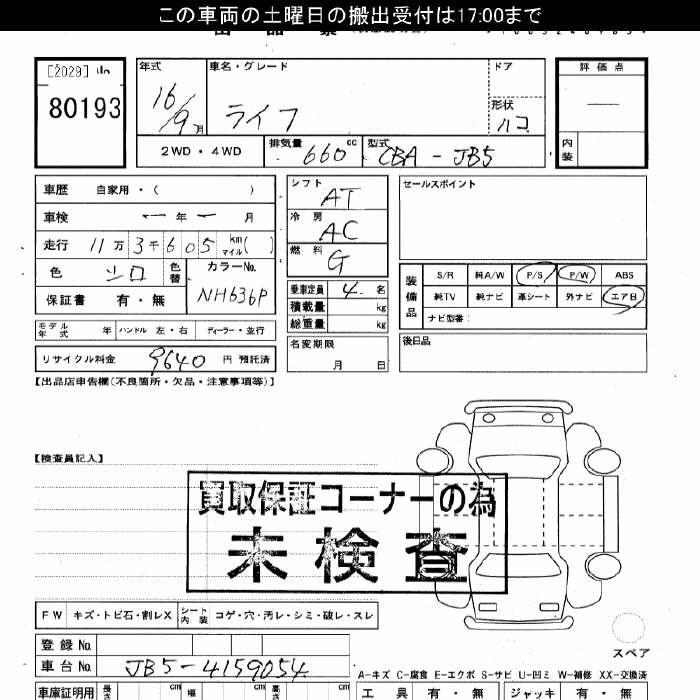 この車両の土曜日の搬出受付は17:00まで
[2029]
80193
年式 車名・グレード ドア 評価点
16/9月 ライフ 形状 ハコ
2WD・4WD 排気量 660cc 型式 CBA-JB5 内装
車歴 自家用・( ) シフト AT セールスポイント
車検 ー年ー月 冷房 AC
走行 11万3千605km マイル( ) 燃料 G
色 シロ 色替 カラーNo. NH636P
装備品 S/R 純A/W P/S P/W ABS
乗車定員 4名 純TV 純ナビ 革シート 外ナビ エアB
保証書 有・無 積載量 kg ナビ型番:
モデル年式 年 ハンドル 左・右 ディーラー・並行 総重量 kg
リサイクル料金 9640円 預託済 名変期限 月 日 後日品
【出品店申告欄(不良箇所・欠品・注意事項等)】
【検査員記入】
買取保証コーナーの為
未検査
FW キズ・トビ石・割レX シート内装 コゲ・穴・汚レ・シミ・破レ・スレ
登録No. スペア
車台No. JB5-4159054
A-キズ C-腐食 E-エクボ S-サビ U-凹ミ W-補修 XX-交換済
車庫証明用 長さ cm 幅 cm 高さ cm 工具 有・無 ジャッキ 有・無